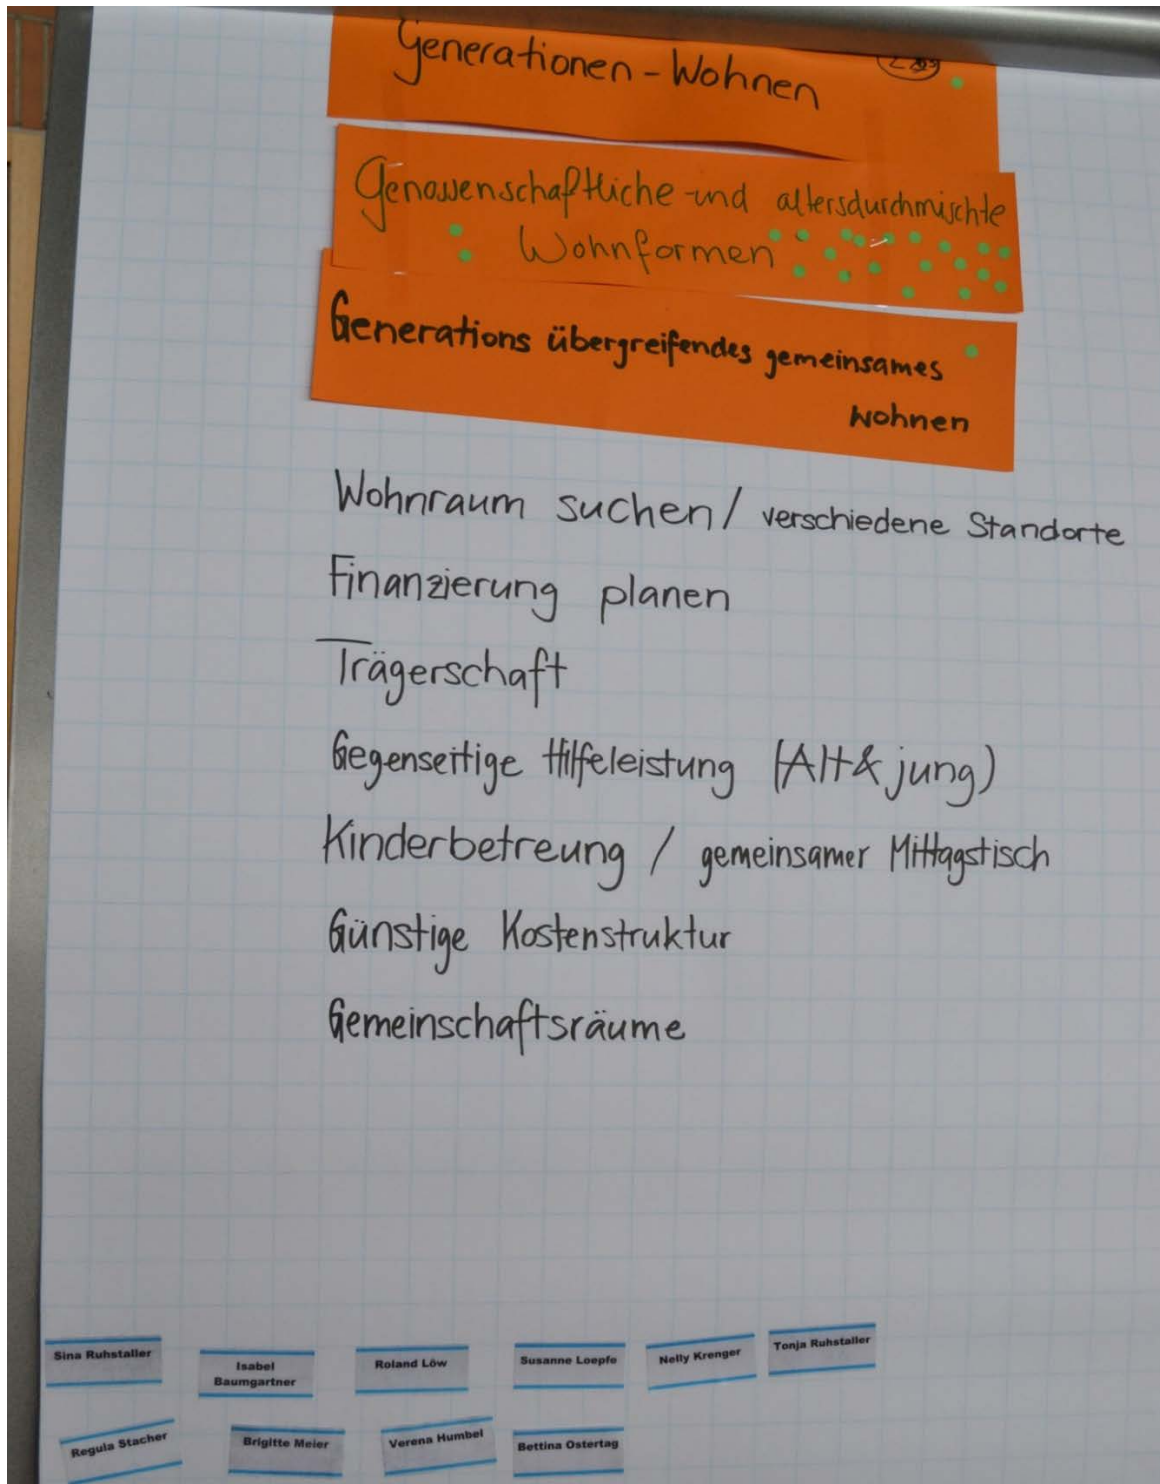 Generationen-Wohnen
Genossenschaftliche und altersdurchmischte
Wohnformen
Generations übergreifendes gemeinsames
wohnen
Wohnraum suchen / verschiedene Standorte
Finanzierung planen
Trägerschaft
Gegenseitige Hilfeleistung (Alt & jung)
Kinderbetreung / gemeinsamer Mittagstisch
Günstige Kostenstruktur
Gemeinschaftsräume
Sina Ruhstaller
Isabel
Baumgartner
Roland Löw
Susanne Loepfe
Nelly Krenger
Tonja Ruhstaller
Regula Stacher
Brigitte Meier
Verena Humbel
Bettina Ostertag